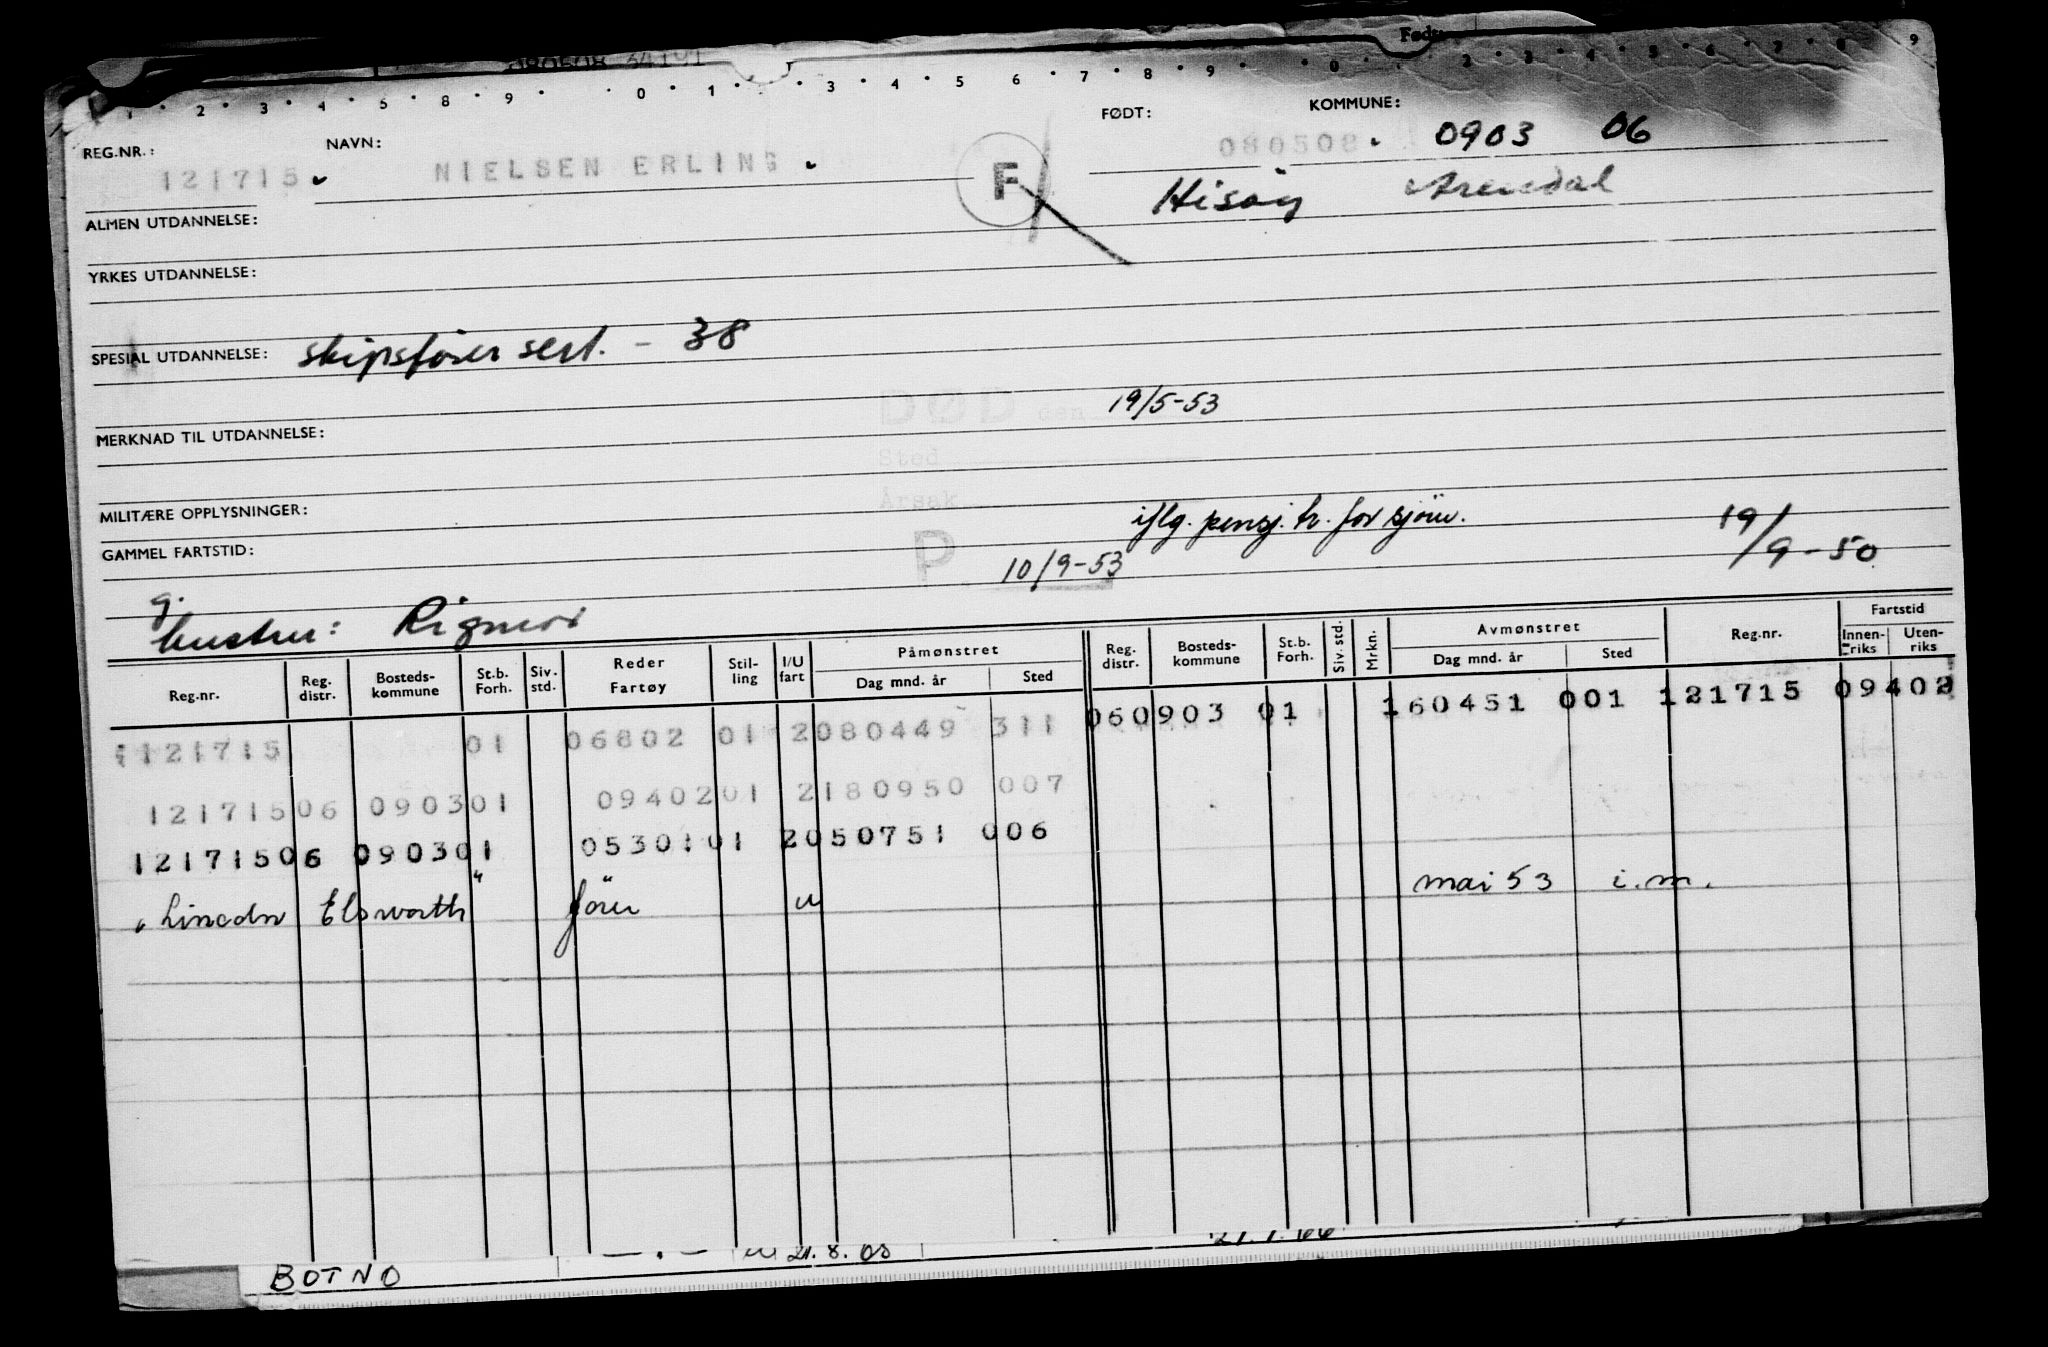 080508 34191
Født:
1 2 3 4 5 8 9 0 1 3 4 5 6 7 8 9 0 2 3 4 5 6 7 8 9
REG.NR.: NAVN: FØDT: KOMMUNE:
121715 NIELSEN ERLING F 080508. 0903 06
Hisøy Arendal
ALMEN UTDANNELSE:
YRKES UTDANNELSE:
SPESIAL UTDANNELSE: skipsfører sert. - 38
DØD den 19/5-53
MERKNAD TIL UTDANNELSE:
Sted
Årsak
MILITÆRE OPPLYSNINGER: iflg. pensj.tr. for sjöm. 19/9-50
GAMMEL FARTSTID: P. 10/9-53
g.
hustru:
Reg.nr. Reg. distr. Bosteds-kommune St.b. Forh. Siv. std. Reder Fartøy Stil-ling I/U fart Påmønstret Dag mnd. år Sted Reg. distr. Bosteds-kommune St.b. Forh. Siv. std. Mrkn. Avmønstret Dag mnd. år Sted Reg.nr. Fartstid Innen-riks Uten-riks
121715 01 06802 01 2080449 311 060903 01 160451 001 121715 09402
12171506 090301 0940201 2180950 007
12171506 090301 0530101 2050751 006
"Lincoln Elsworth" förer u mai 53 i.m.
BOTNO 21.8.08